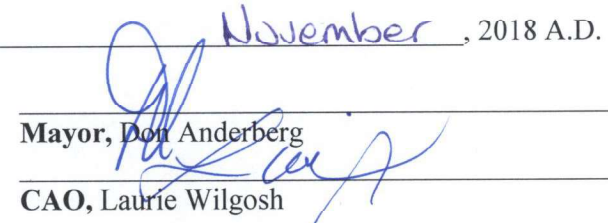 November, 2018 A.D.
Mayor, Don Anderberg
CAO, Laurie Wilgosh